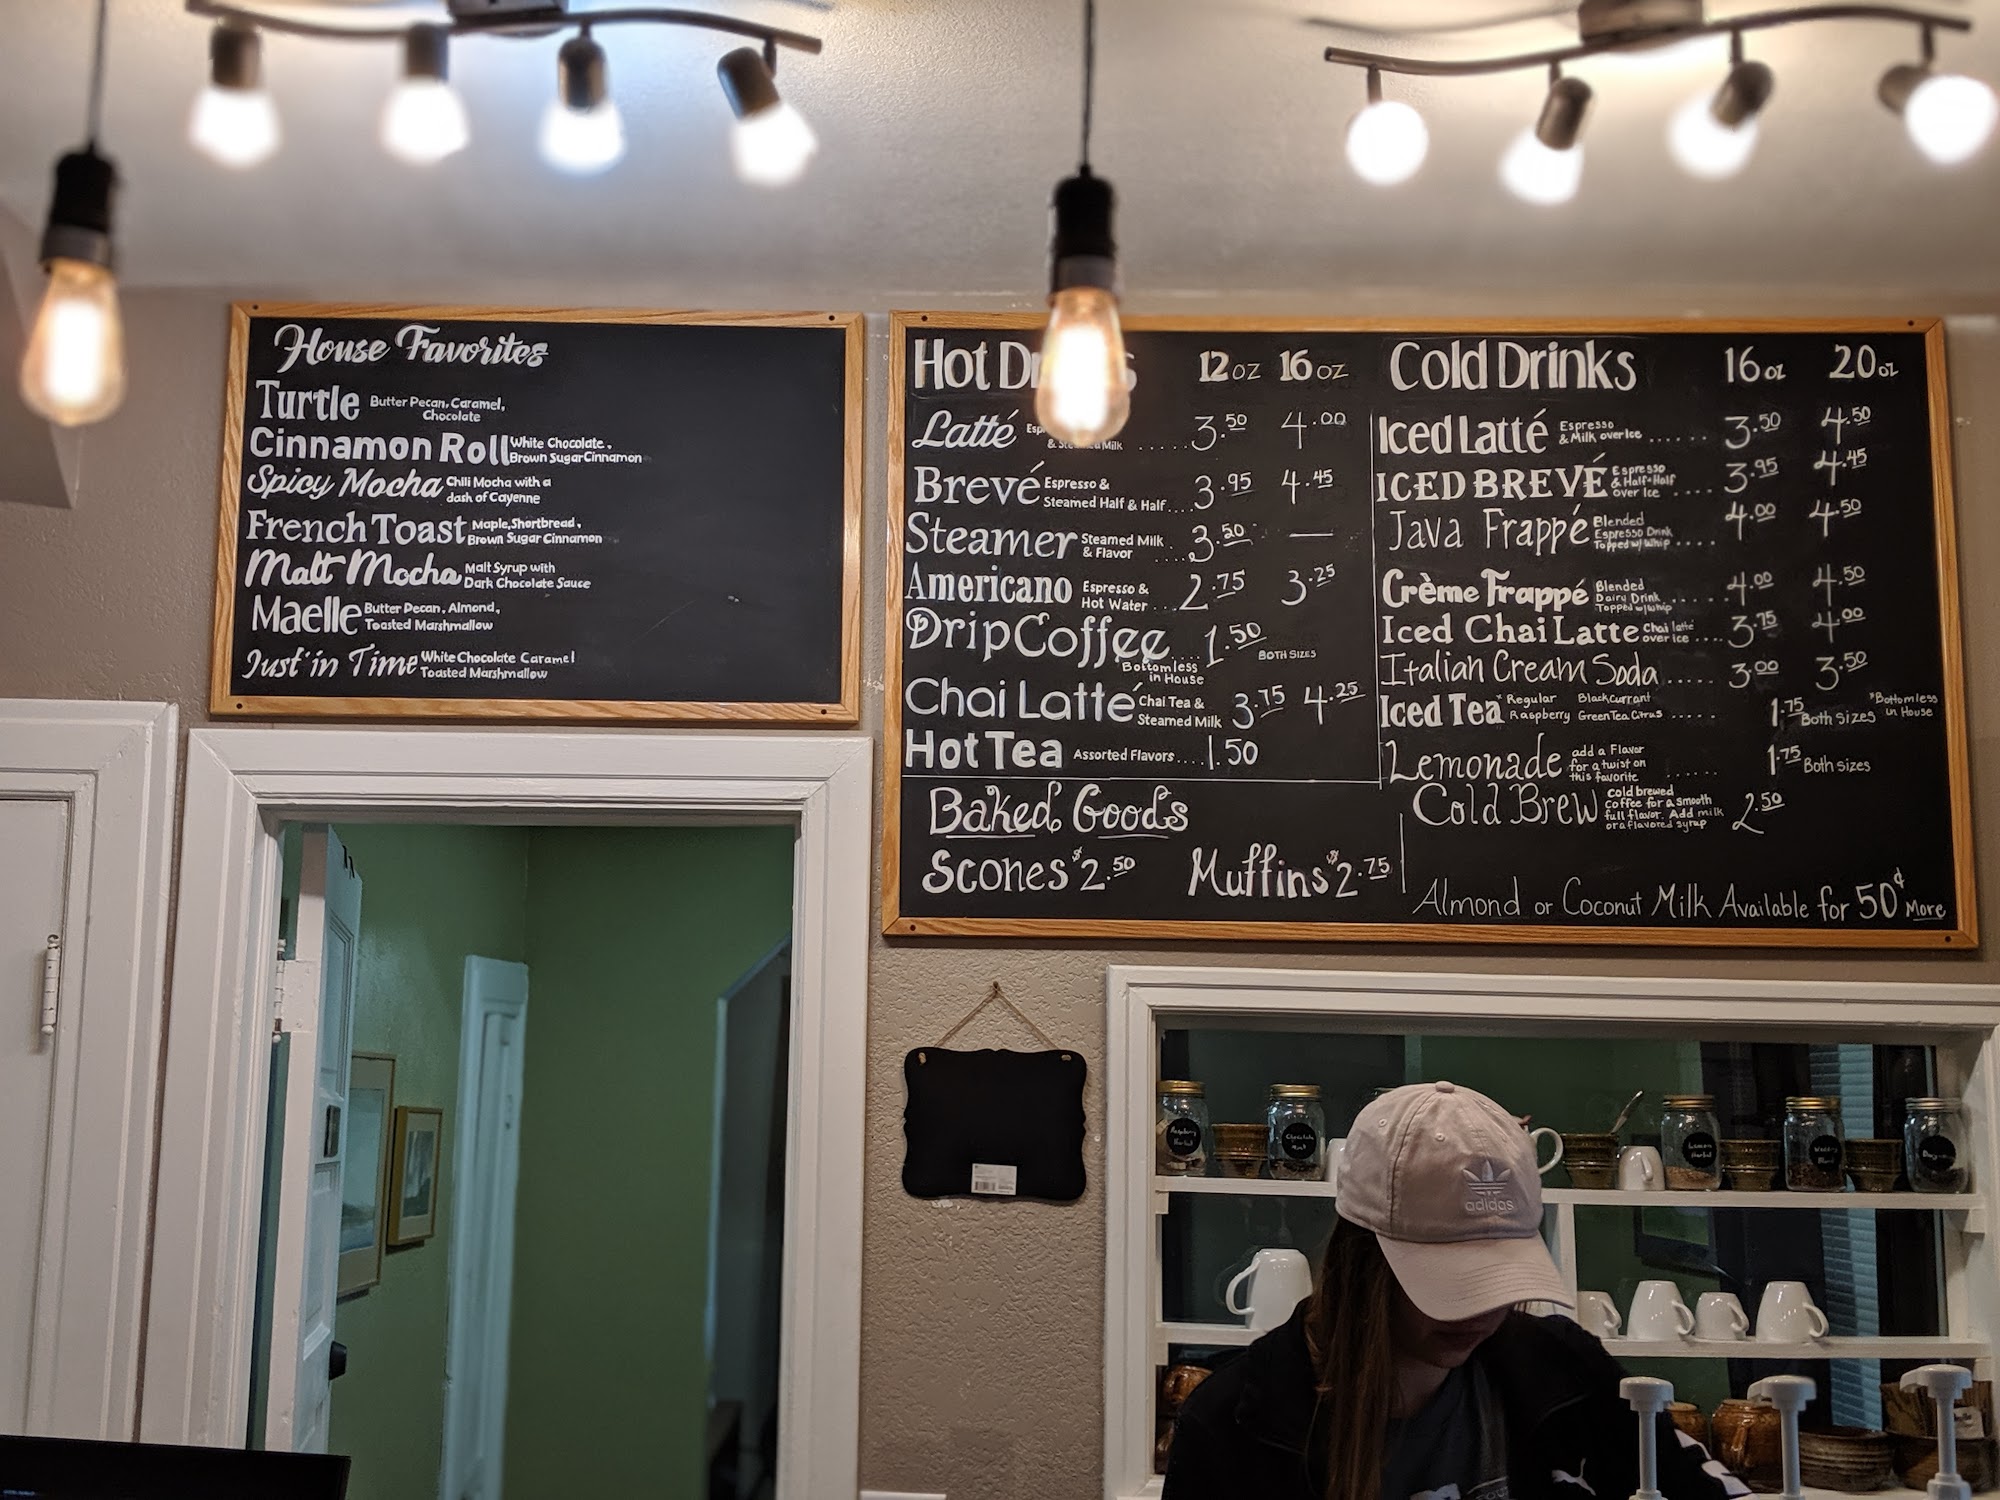 House Favorites
Turtle Butter Pecan, Caramel,
Chocolate
Cinnamon Roll White Chocolate,
Brown Sugar Cinnamon
Spicy Mocha Chili Mocha with a
dash of Cayenne
French Toast Maple, Shortbread,
Brown Sugar Cinnamon
Malt Mocha Malt Syrup with
Dark Chocolate Sauce
Maelle Butter Pecan, Almond,
Toasted Marshmallow
Just in Time White Chocolate Caramel
Toasted Marshmallow
Hot 12oz 16oz
Latté 3.50 4.00
& Milk
Brevé Espresso & 3.95 4.45
Steamed Half & Half
Steamer Steamed Milk 3.20 —
& Flavor
Americano Espresso & 2.75 3.25
Hot Water
Drip Coffee 1.50 Both Sizes
Bottomless
in House
Chai Latté Chai Tea & 3.75 4.25
Steamed Milk
Hot Tea Assorted Flavors.... 1.50
Baked Goods
Scones $2.50 Muffins $2.75
Cold Drinks 16oz 20oz
Iced Latté Espresso 3.50 4.50
& Milk over Ice
ICED BREVÉ Espresso 3.95 4.45
& Half+Half
over Ice
Java Frappé Blended 4.00 4.50
Espresso Drink
Topped w/ Whip
Crème Frappé Blended 4.00 4.50
Dairy Drink
Topped w/ whip
Iced Chai Latte Chai latte 3.75 4.00
over ice
Italian Cream Soda..... 3.00 3.50
Iced Tea * Regular Blackcurrant 1.75 Both Sizes *Bottomless
Raspberry Green Tea Citrus in House
Lemonade add a Flavor 1.75 Both Sizes
for a twist on
this favorite
Cold Brew cold brewed 2.50
coffee for a smooth
full flavor. Add milk
or a flavored syrup
Almond or Coconut Milk Available for 50¢ More
Raspberry
Herbal
Chocolate
Mint
Lemon
Herbal
adidas